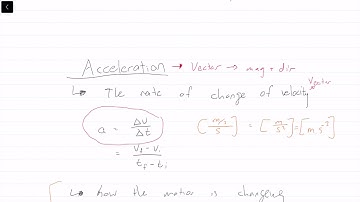 Acceleration → Vector → mag + dir
↳ The rate of change of velocity vector
a = Δv/Δt [m/s/s] = [m/s²] = [m s⁻²]
= vf - vi / tf - ti
↳ how the motion is changing